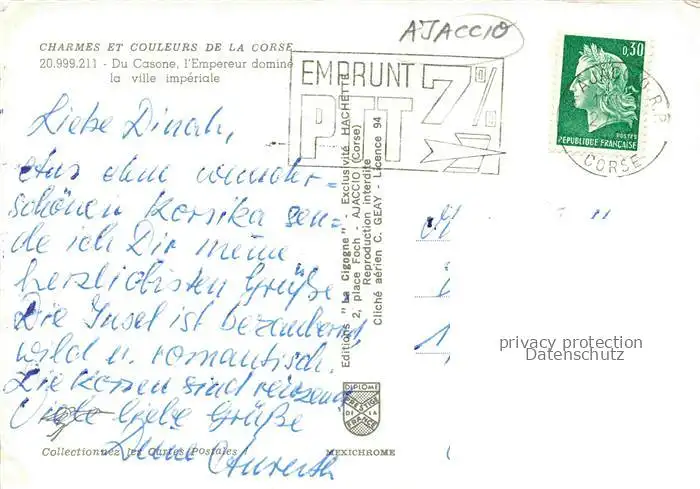 AJACCIO
CHARMES ET COULEURS DE LA CORSE
20.999.211 - Du Casone, l'Empereur domine
la ville impériale
EMPRUNT
PTT 7%
0,30
POSTES
REPUBLIQUE FRANÇAISE
AJACCIO R.P.
CORSE
Liebe Dinah,
aus dem wunder-
schönen Korsika sen-
de ich Dir meine
herzlichsten Grüße.
Die Insel ist bezaubernd,
wild u. romantisch.
Die Korsen sind reizend
Viele liebe Grüße
Deine
Editions "La Cigogne" - Exclusivité HACHETTE
2, place Foch - AJACCIO (Corse)
Reproduction interdite
Cliché aérien C. GEAY - Licence 94
privacy protection
Datenschutz
DIPLOME
PRESTIGE
DE LA
FRANCE
Collectionnez les Cartes Postales !
MEXICHROME